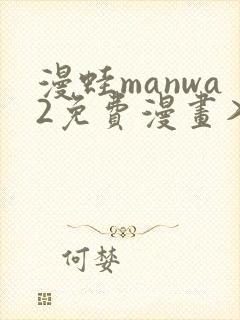 漫蛙manwa
2免費漫畫
何婪